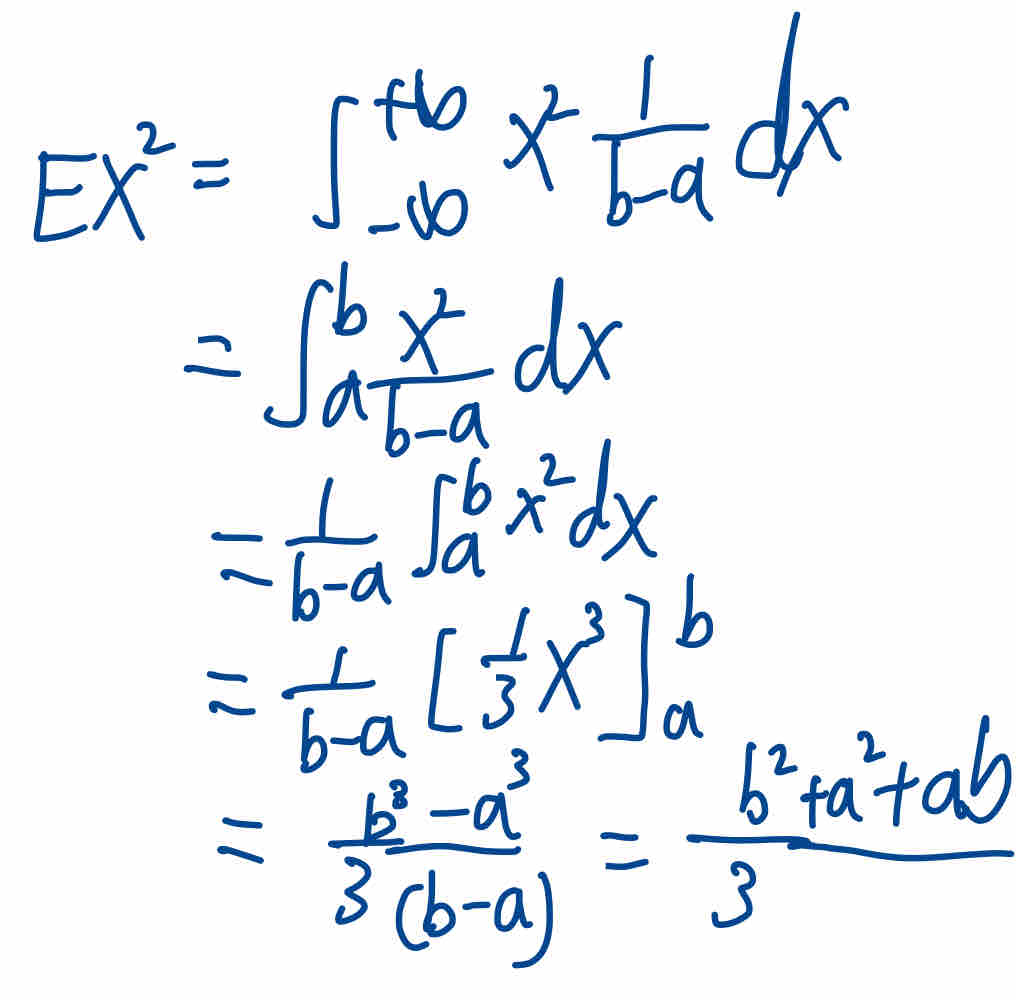 EX² = ∫_{-∞}^{+∞} x² \frac{1}{b-a} dx
= ∫_a^b \frac{x²}{b-a} dx
= \frac{1}{b-a} ∫_a^b x² dx
= \frac{1}{b-a} [\frac{1}{3} x³]_a^b
= \frac{b³-a³}{3(b-a)} = \frac{b²+a²+ab}{3}